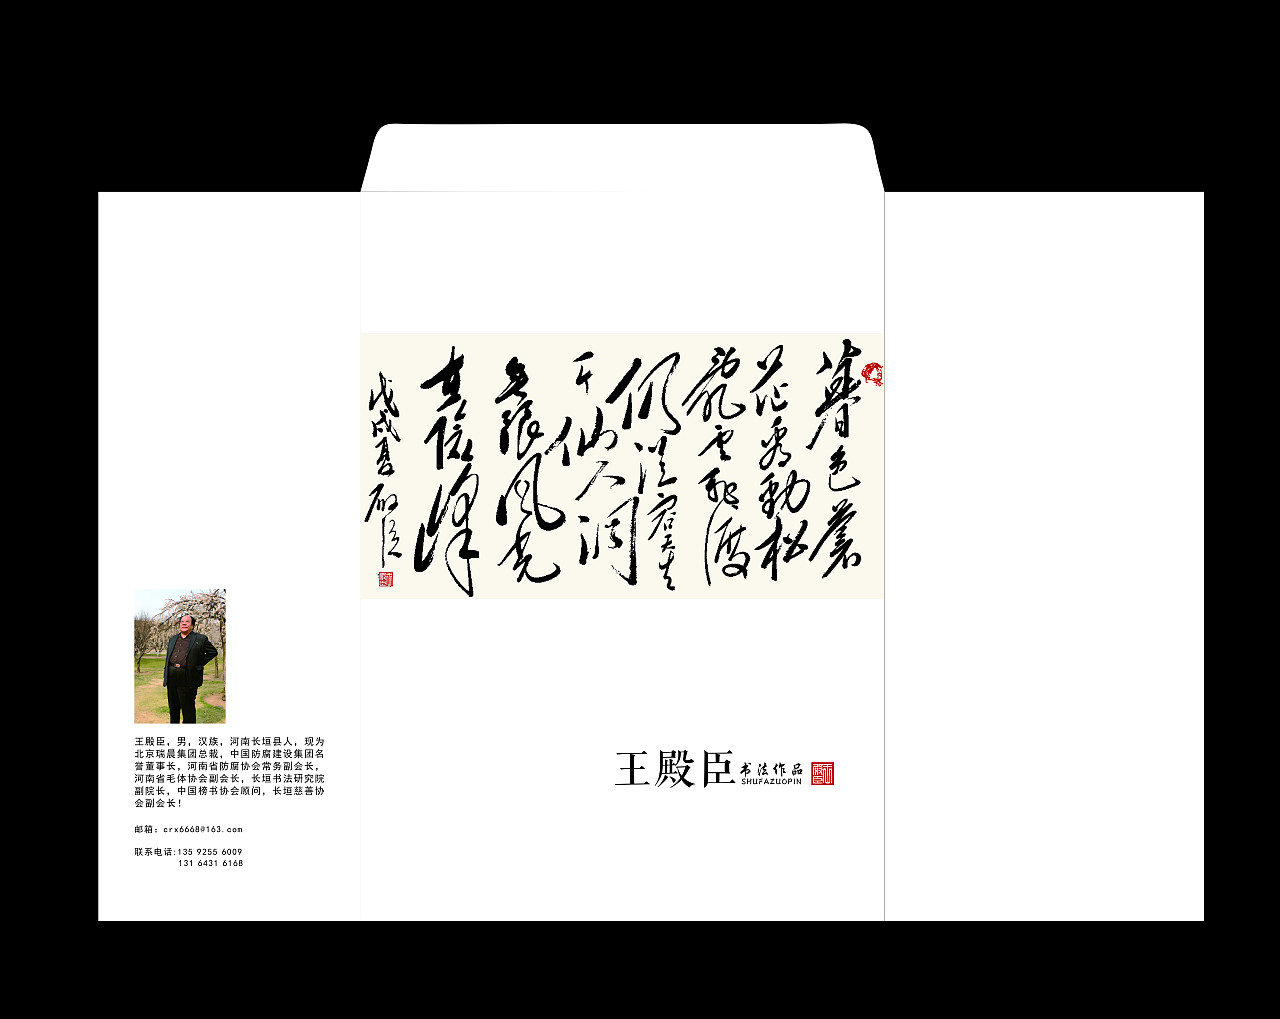 暮色蒼
茫看勁松
亂雲飛渡
仍從容天生
一个仙人洞
無限風光
在險峰
戊戌夏殿臣
王殿臣，男，汉族，河南长垣县人，现为
北京瑞晨集团总裁，中国防腐建设集团名
誉董事长，河南省防腐协会常务副会长，
河南省毛体协会副会长，长垣书法研究院
副院长，中国榜书协会顾问，长垣慈善协
会副会长！
邮箱：crx6668@163.com
联系电话:135 9255 6009
131 6431 6168
王殿臣书法作品
SHUFAZUOPIN